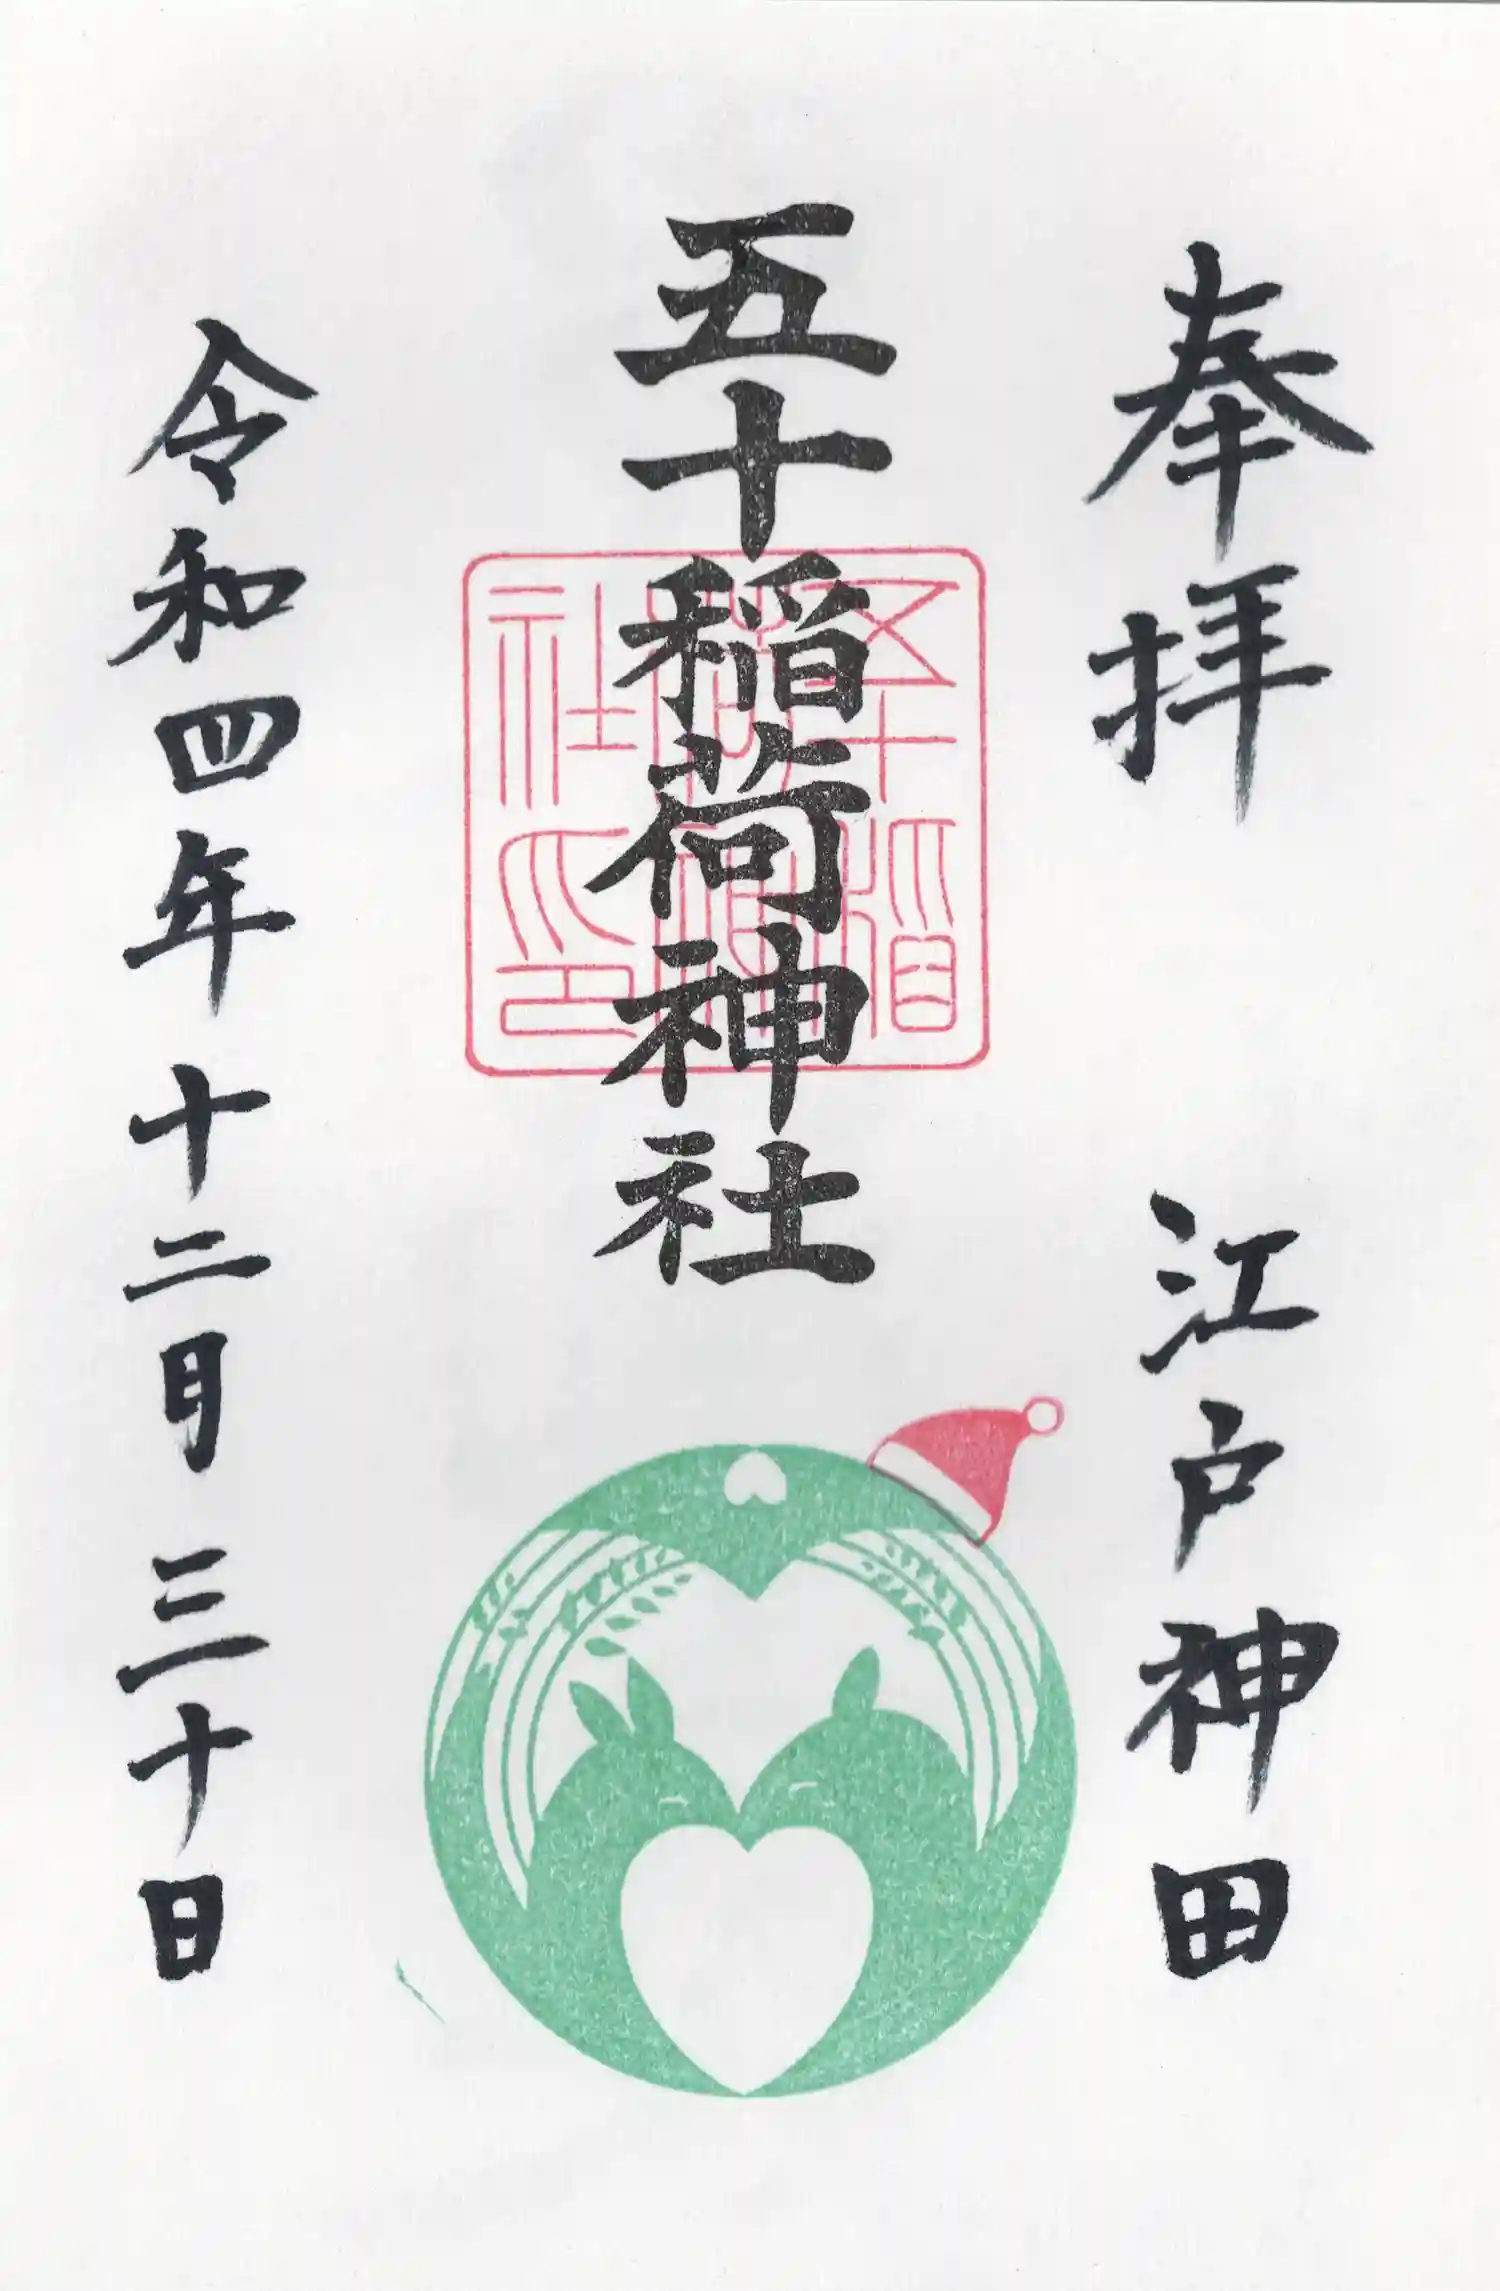 奉拝　江戸神田
五十稲荷神社
五十稲荷神社印
令和四年十二月三十日